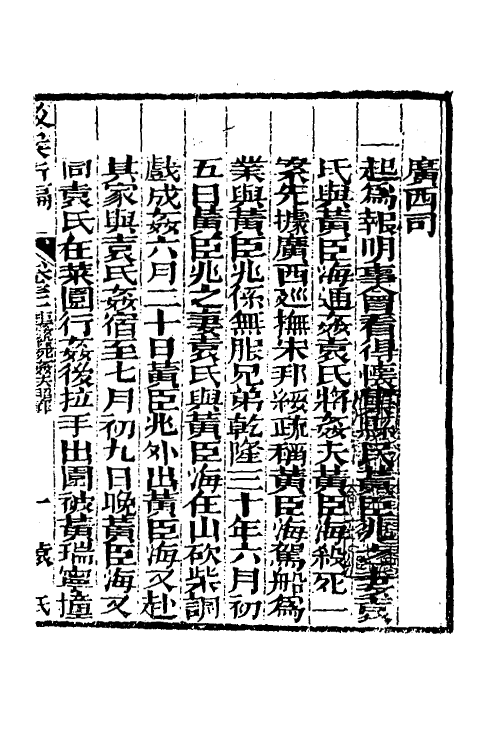 廣西司
一起爲報明事會看得懷集縣民黃臣兆之妻袁
氏與黃臣海通姦袁氏將姦夫黃臣海殺死一
案先據廣西巡撫宋邦綏疏稱黃臣海駕船爲
業與黃臣兆係無服兄弟乾隆三十年六月初
五日黃臣兆之妻袁氏與黃臣海在山砍柴調
戲成姦六月二十日黃臣兆外出黃臣海又赴
其家與袁氏姦宿至七月初九日晚黃臣海又
同袁氏在菜園行姦後拉手出園被黃瑞寧撞
一 袁氏